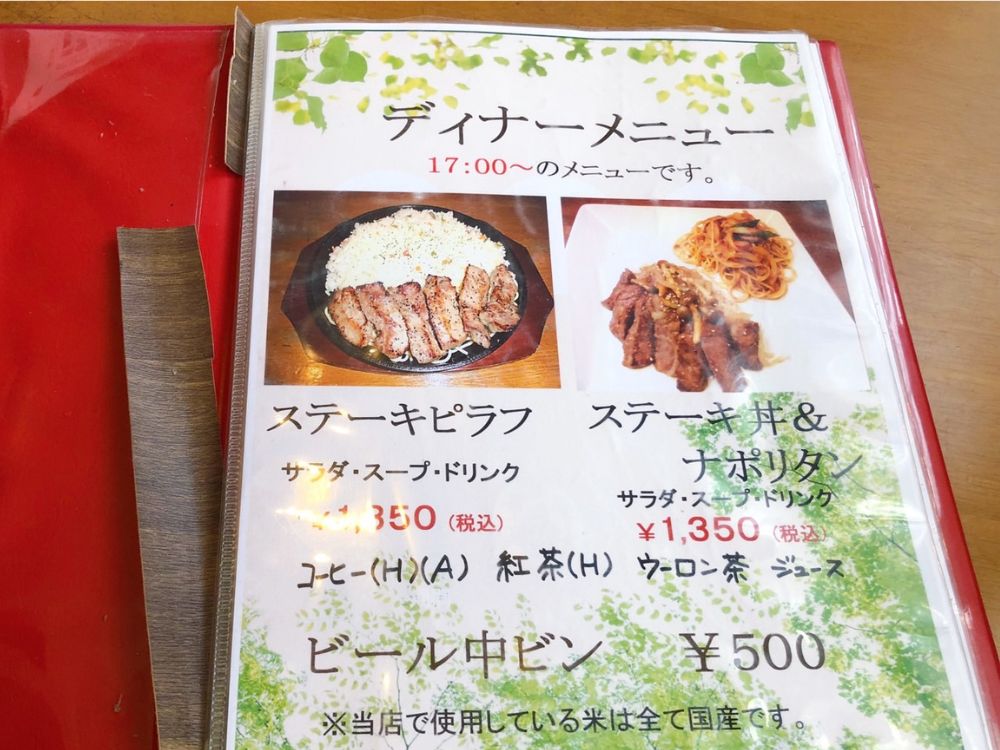 ディナーメニュー
17:00～のメニューです。
ステーキピラフ
サラダ・スープ・ドリンク
¥1,350（税込）
ステーキ丼＆
ナポリタン
サラダ・スープ・ドリンク
¥1,350（税込）
コーヒー(H)(A) 紅茶(H) ウーロン茶 ジュース
ビール中ビン ¥500
※当店で使用している米は全て国産です。